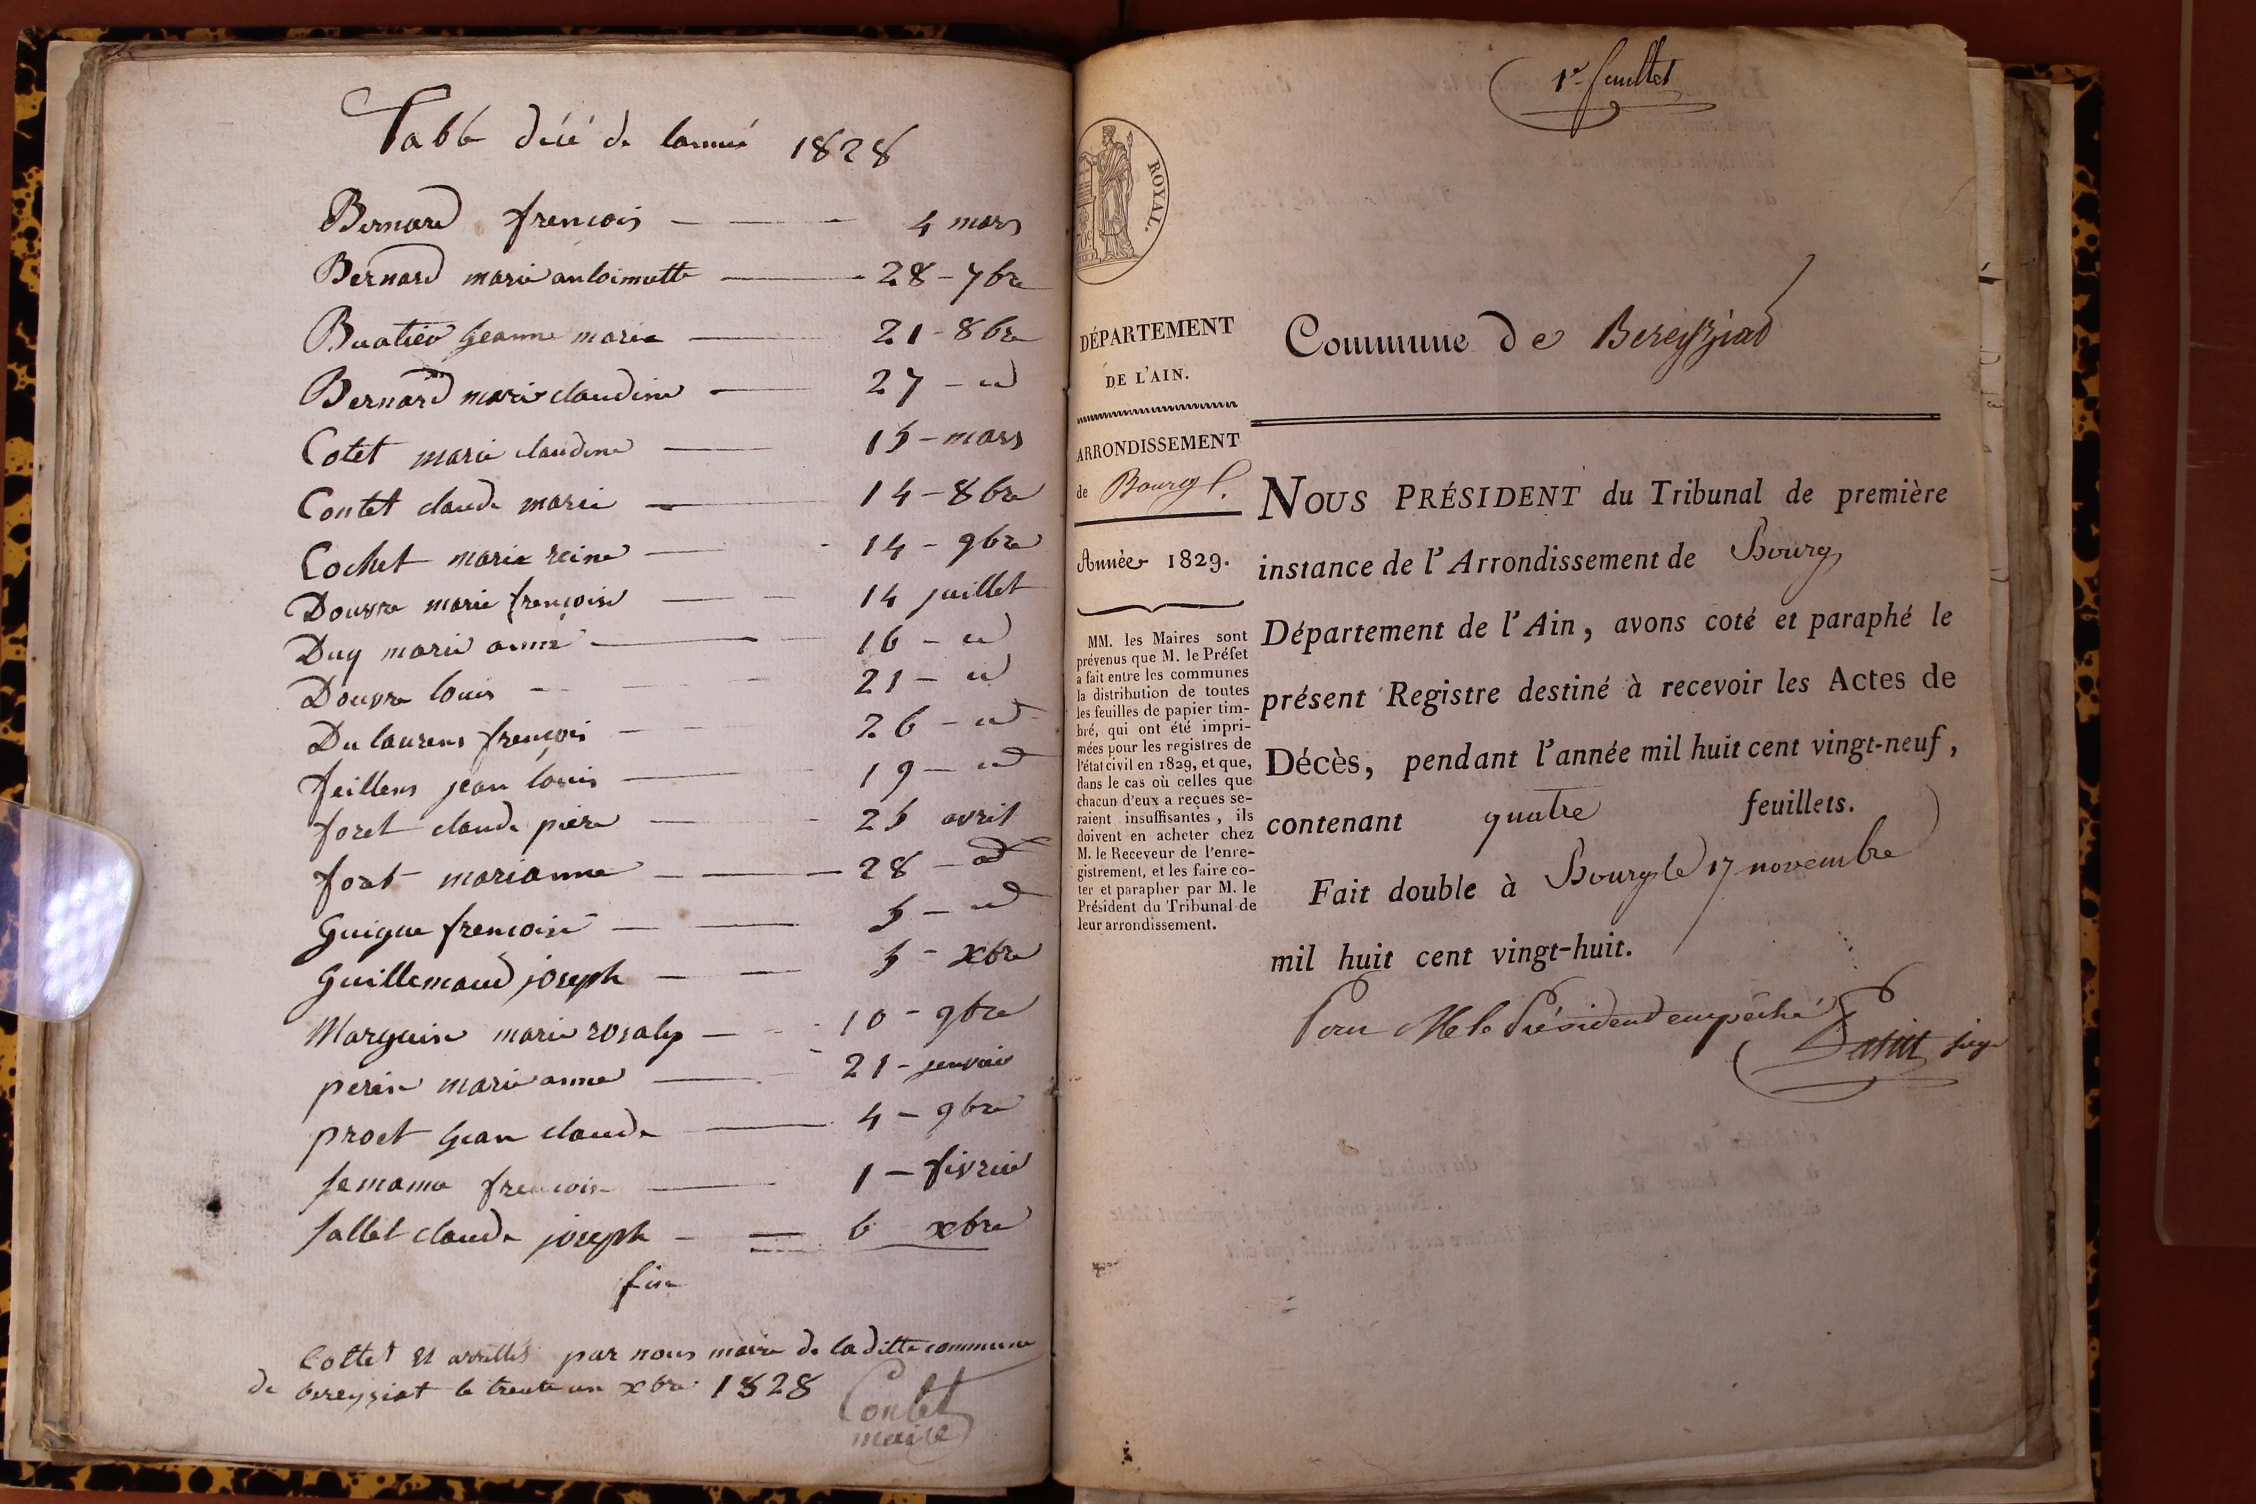 Table décé de lanné 1828
Bernard frencois 4 mars
Bernard marie antoinette 28 - 7bre
Buatier Jeanne marie 21 - 8bre
Bernard marie claudine 27 - id
Cotet marie claudine 15 - mars
Contet claude marie 14 - 8bre
Cochet marie reine 14 - 9bre
Douvre marie frencoise 14 juillet
Duy marie anne 16 - id
Douvre louis 21 - id
Du laurens francois 26 - id
feillens jean louis 19 - id
foret claude piere 25 avril
foret marianne 28 - id
Guigue frencoise 5 - id
Guillemaud joseph 5 - xbre
Marguin marie rosaly 10 - 9bre
perin marie anne 21 - janvier
proet Jean claude 4 - 9bre
francois 1 - févrié
sallet claude joseph 6 xbre
fin
Cottet et arrettés par nous maire de la ditte commune
de bereyziat le trente un xbre 1828
Contet
maire
1er feuillet
ROYAL.
DÉPARTEMENT
DE L'AIN.
ARRONDISSEMENT
de Bourg
Année 1829.
MM. les Maires sont
prévenus que M. le Préfet
a fait entre les communes
la distribution de toutes
les feuilles de papier tim-
bré, qui ont été impri-
mées pour les registres de
l'état civil en 1829, et que,
dans le cas où celles que
chacun d'eux a reçues se-
raient insuffisantes, ils
doivent en acheter chez
M. le Receveur de l'enre-
gistrement, et les faire co-
ter et parapher par M. le
Président du Tribunal de
leur arrondissement.
Commune de Bereyziat
NOUS PRÉSIDENT du Tribunal de première
instance de l'Arrondissement de Bourg
Département de l'Ain, avons coté et paraphé le
présent Registre destiné à recevoir les Actes de
Décès, pendant l'année mil huit cent vingt-neuf,
contenant quatre feuillets.
Fait double à Bourg le 17 novembre
mil huit cent vingt-huit.
Pour M. le Président empêché
juge